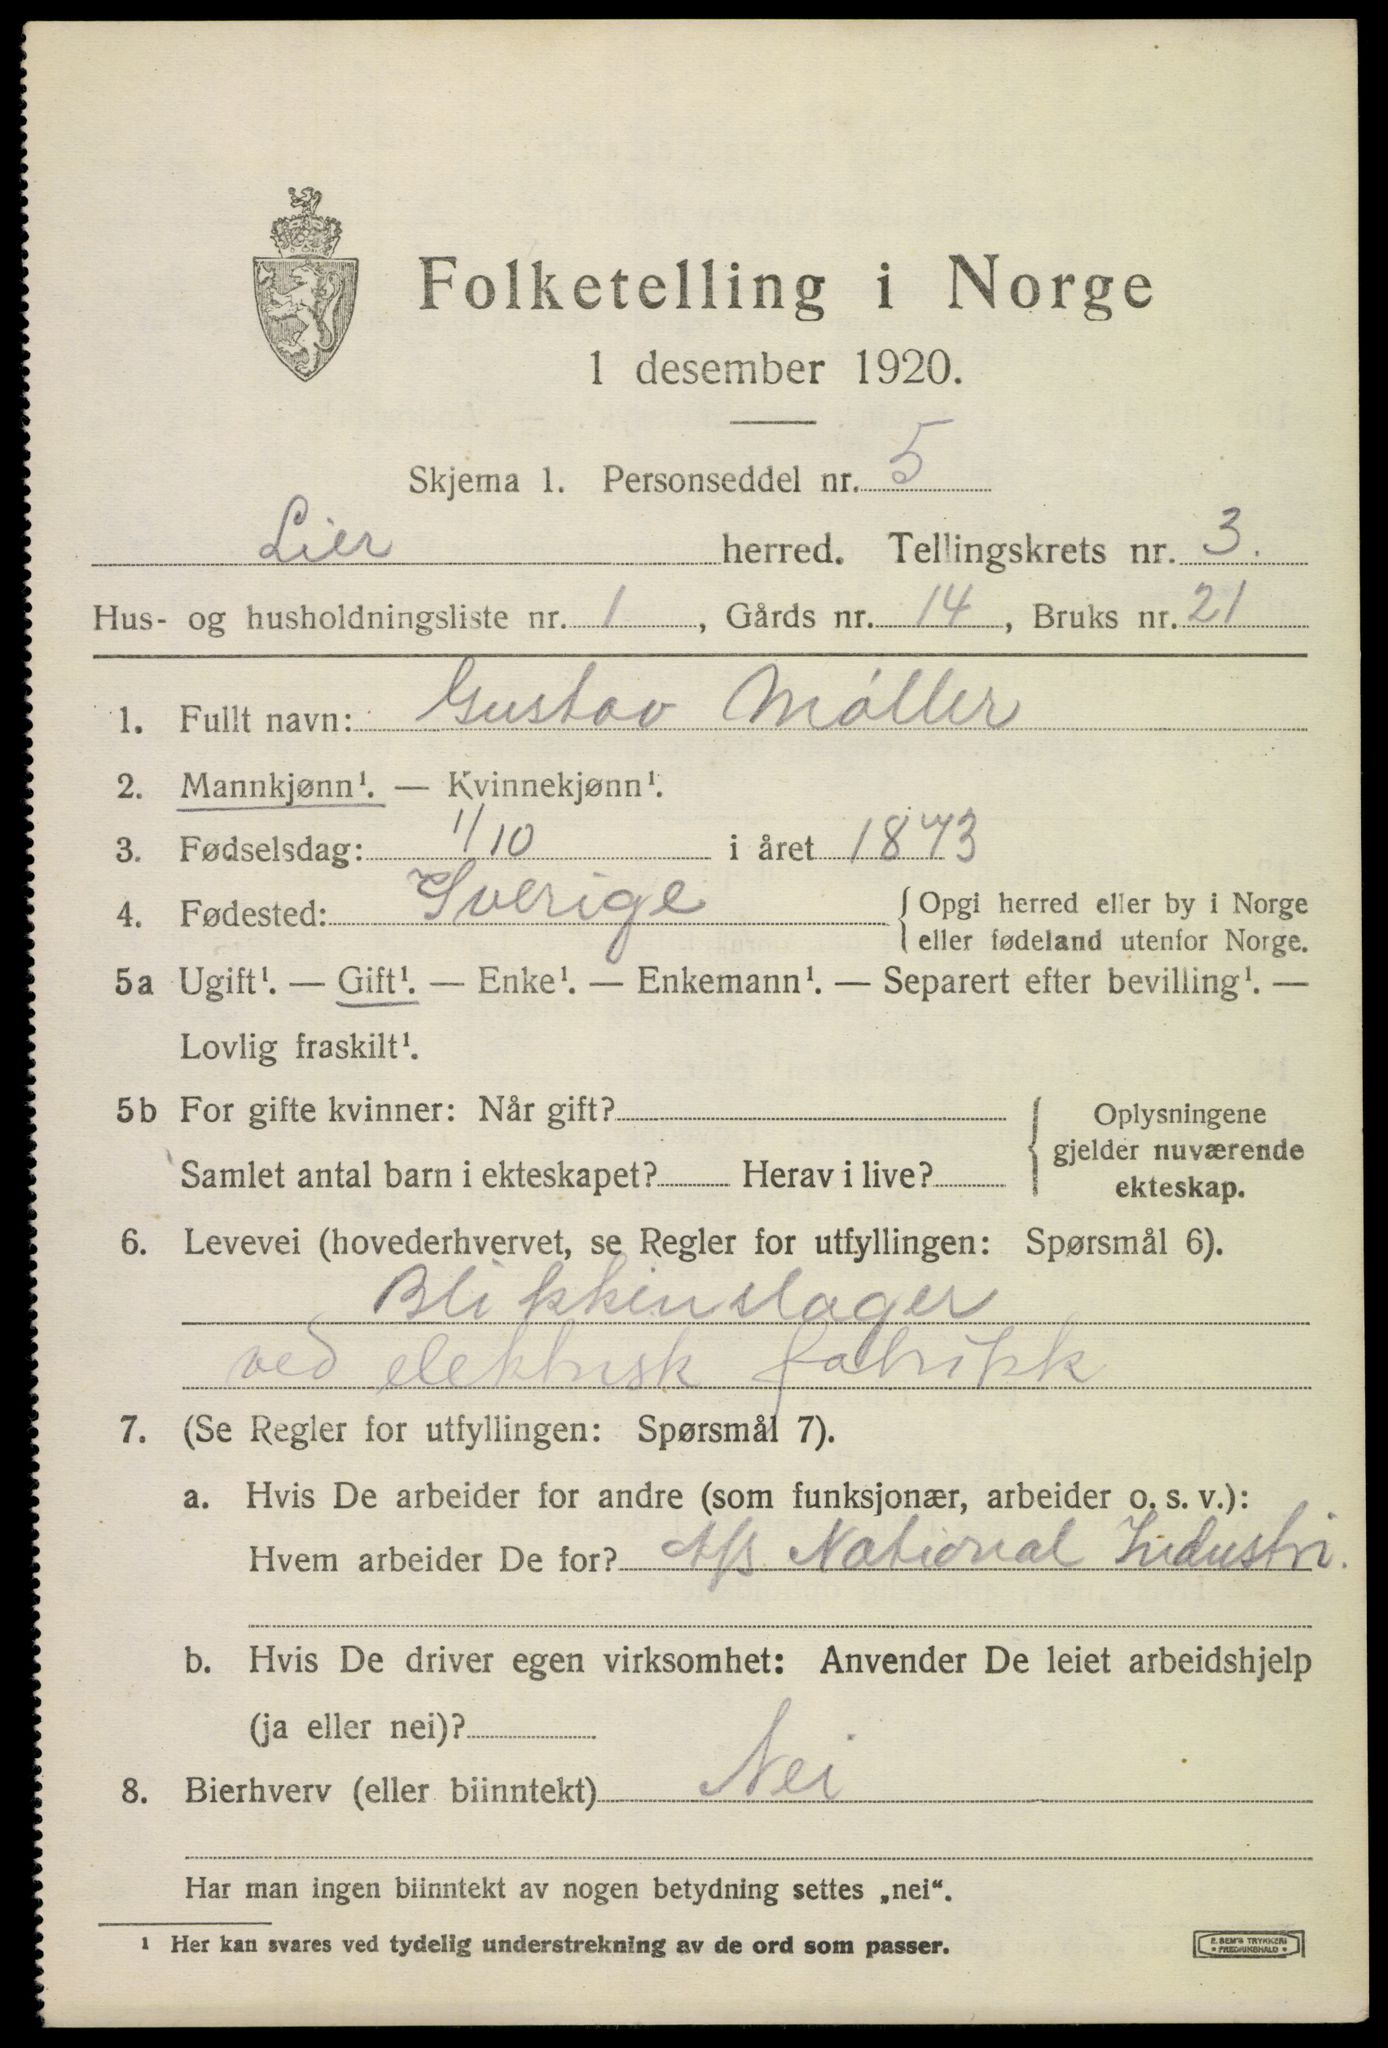 Folketelling i Norge
1 desember 1920.
Skjema 1. Personseddel nr. 5
Lier herred. Tellingskrets nr. 3.
Hus- og husholdningsliste nr. 1, Gårds nr. 14, Bruks nr. 21
1. Fullt navn: Gustav Møller
2. Mannkjønn¹. — Kvinnekjønn¹.
3. Fødselsdag: 1/10 i året 1873
4. Fødested: Sverige { Opgi herred eller by i Norge
eller fødeland utenfor Norge.
5a Ugift¹. — Gift¹. — Enke¹. — Enkemann¹. — Separert efter bevilling¹. —
Lovlig fraskilt¹.
5b For gifte kvinner: Når gift? { Oplysningene
gjelder nuværende
Samlet antal barn i ekteskapet? Herav i live?
ekteskap.
6. Levevei (hovederhvervet, se Regler for utfyllingen: Spørsmål 6).
Blikkenslager
ved elektrisk fabrikk
7. (Se Regler for utfyllingen: Spørsmål 7).
a. Hvis De arbeider for andre (som funksjonær, arbeider o. s. v.):
Hvem arbeider De for? A/s National Industri.
b. Hvis De driver egen virksomhet: Anvender De leiet arbeidshjelp
(ja eller nei)?
8. Bierhverv (eller biinntekt) Nei
Har man ingen biinntekt av nogen betydning settes „nei“.
¹ Her kan svares ved tydelig understrekning av de ord som passer.
E. SEM'S TRYKKERI
• FREDRIKSHALD •